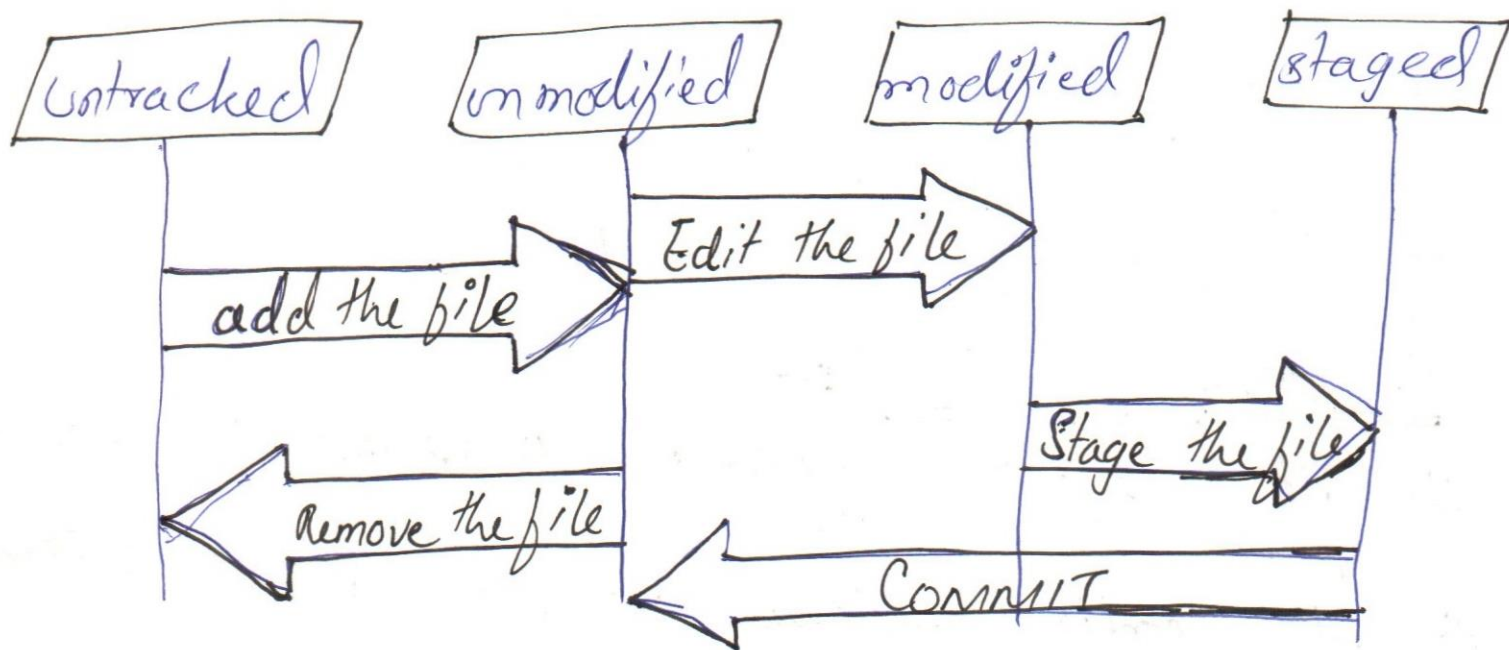 untracked
unmodified
modified
staged
Edit the file
add the file
Stage the file
Remove the file
COMMIT